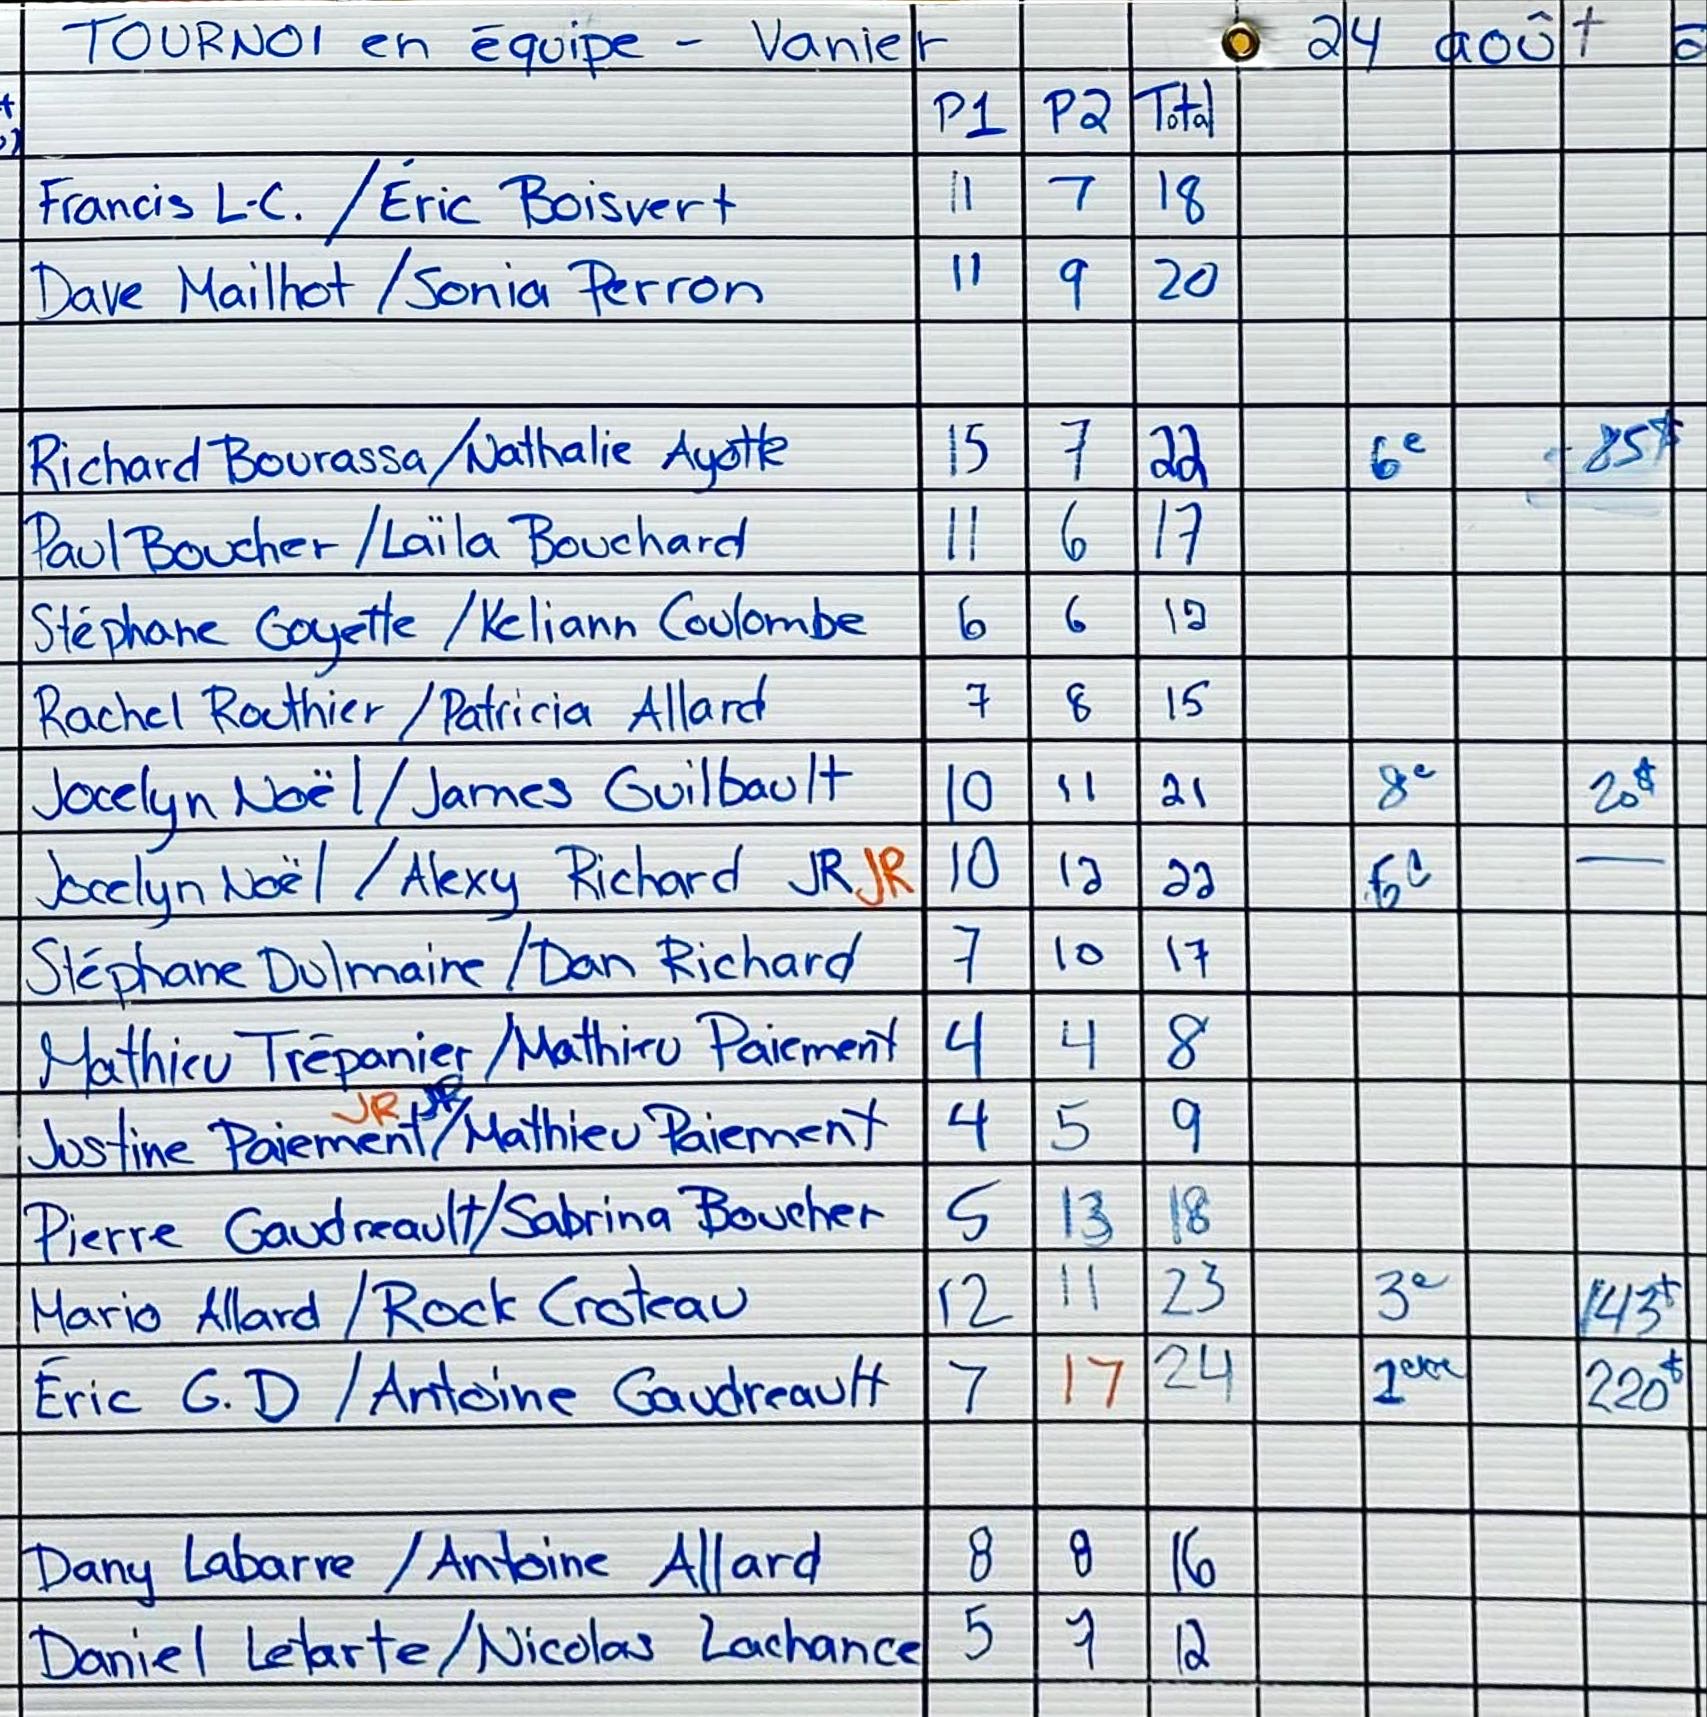 TOURNOI en équipe - Vanier 24 août
P1 P2 Total
Francis L-C. /Éric Boisvert 11 7 18
Dave Mailhot /Sonia Perron 11 9 20
Richard Bourassa/Nathalie Ayotte 15 7 22 6e 85$
Paul Boucher /Laïla Bouchard 11 6 17
Stéphane Goyette /Keliann Coulombe 6 6 12
Rachel Routhier /Patricia Allard 7 8 15
Jocelyn Noël/James Guilbault 10 11 21 8e 20$
Jocelyn Noël /Alexy Richard JR JR 10 12 22 —
Stéphane Dulmaine /Dan Richard 7 10 17
Mathieu Trépanier /Mathieu Paiement 4 4 8
JR JR
Justine Paiement/Mathieu Paiement 4 5 9
Pierre Gaudreault/Sabrina Boucher 5 13 18
Mario Allard /Rock Croteau 12 11 23 3e 143$
Éric G.D /Antoine Gaudreault 7 17 24 220$
Dany Labarre /Antoine Allard 8 8 16
Daniel Letarte/Nicolas Lachance 5 7 12